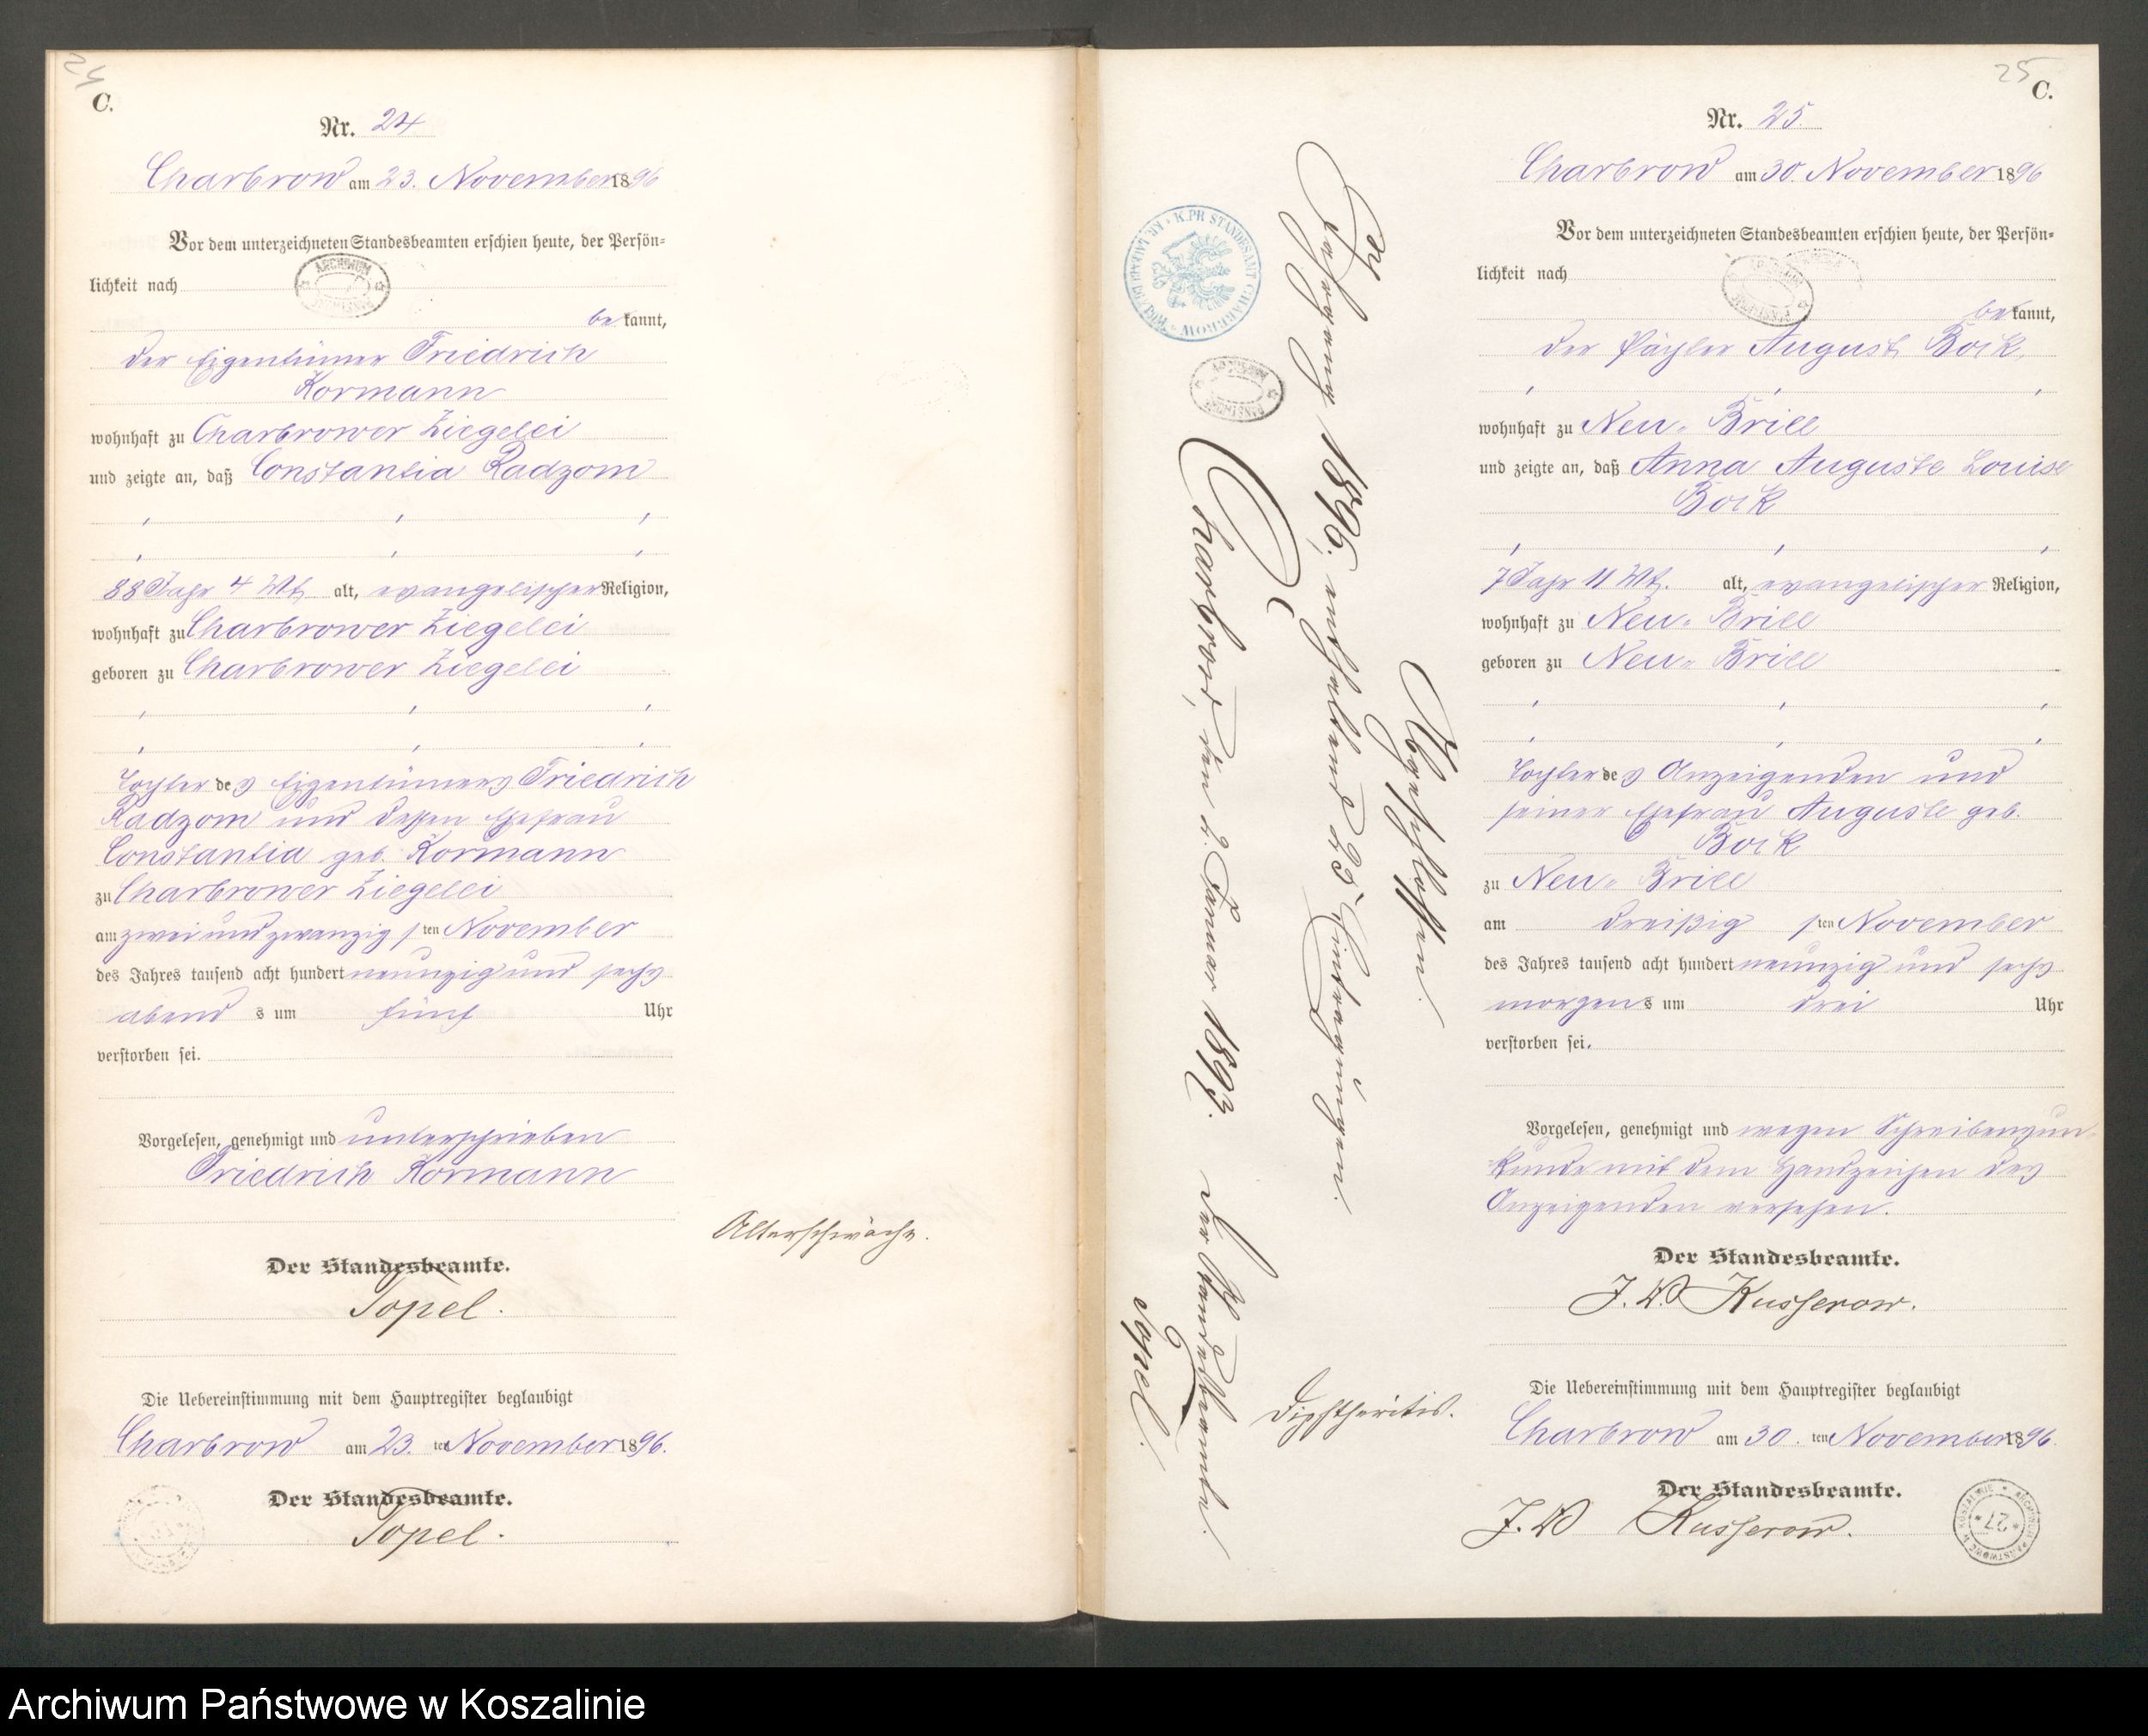 24
C.
Nr. 24
Charbrow am 23. November 1896
Vor dem unterzeichneten Standesbeamten erschien heute, der Persön=
lichkeit nach
ARCHIWUM
bekannt,
der Eigentümer Friedrich
Kormann
wohnhaft zu Charbrower Ziegelei
und zeigte an, daß Constantia Radzom
88 Jahr 4 Mt alt, evangelischer Religion,
wohnhaft zu Charbrower Ziegelei
geboren zu Charbrower Ziegelei
Tochter des Eigentümers Friedrich
Radzom und dessen Ehefrau
Constantia geb. Kormann
zu Charbrower Ziegelei
am zwei und zwanzigsten November
des Jahres tausend acht hundert neunzig und sechs
abends um fünf Uhr
verstorben sei.
Vorgelesen, genehmigt und unterschrieben
Friedrich Kormann
Altersschwäche.
Der Standesbeamte.
Topel.
Die Uebereinstimmung mit dem Hauptregister beglaubigt
Charbrow am 23. ten November 1896.
Der Standesbeamte.
Topel.
K. PR STANDESAMT CHARBROW
Abgeschlossen.
Jahrgang 1896, enthaltend 25 Eintragungen.
Charbrow, den 2. Januar 1897.
Der Standesbeamte.
Topel.
25
C.
Nr. 25.
Charbrow am 30. November 1896
Vor dem unterzeichneten Standesbeamten erschien heute, der Persön=
lichkeit nach
bekannt,
der Pächter August Bock,
wohnhaft zu Neu- Brill
und zeigte an, daß Anna Auguste Louise
Bock
7 Jahr 11 Mt. alt, evangelischer Religion,
wohnhaft zu Neu- Brill
geboren zu Neu- Brill
Tochter des Anzeigenden und
seiner Ehefrau Auguste geb.
Bock
zu Neu- Brill
am dreißigsten November
des Jahres tausend acht hundert neunzig und sechs
morgens um drei Uhr
verstorben sei.
Vorgelesen, genehmigt und wegen Schreibensun-
kunde mit dem Handzeichen des
Anzeigenden versehen.
Der Standesbeamte.
J. V. Kusserow.
Diphtheritis.
Die Uebereinstimmung mit dem Hauptregister beglaubigt
Charbrow am 30. ten November 1896.
Der Standesbeamte.
J. V. Kusserow.
ARCHIWUM PAŃSTWOWE W KOSZALINIE
* 27 *
Archiwum Państwowe w Koszalinie